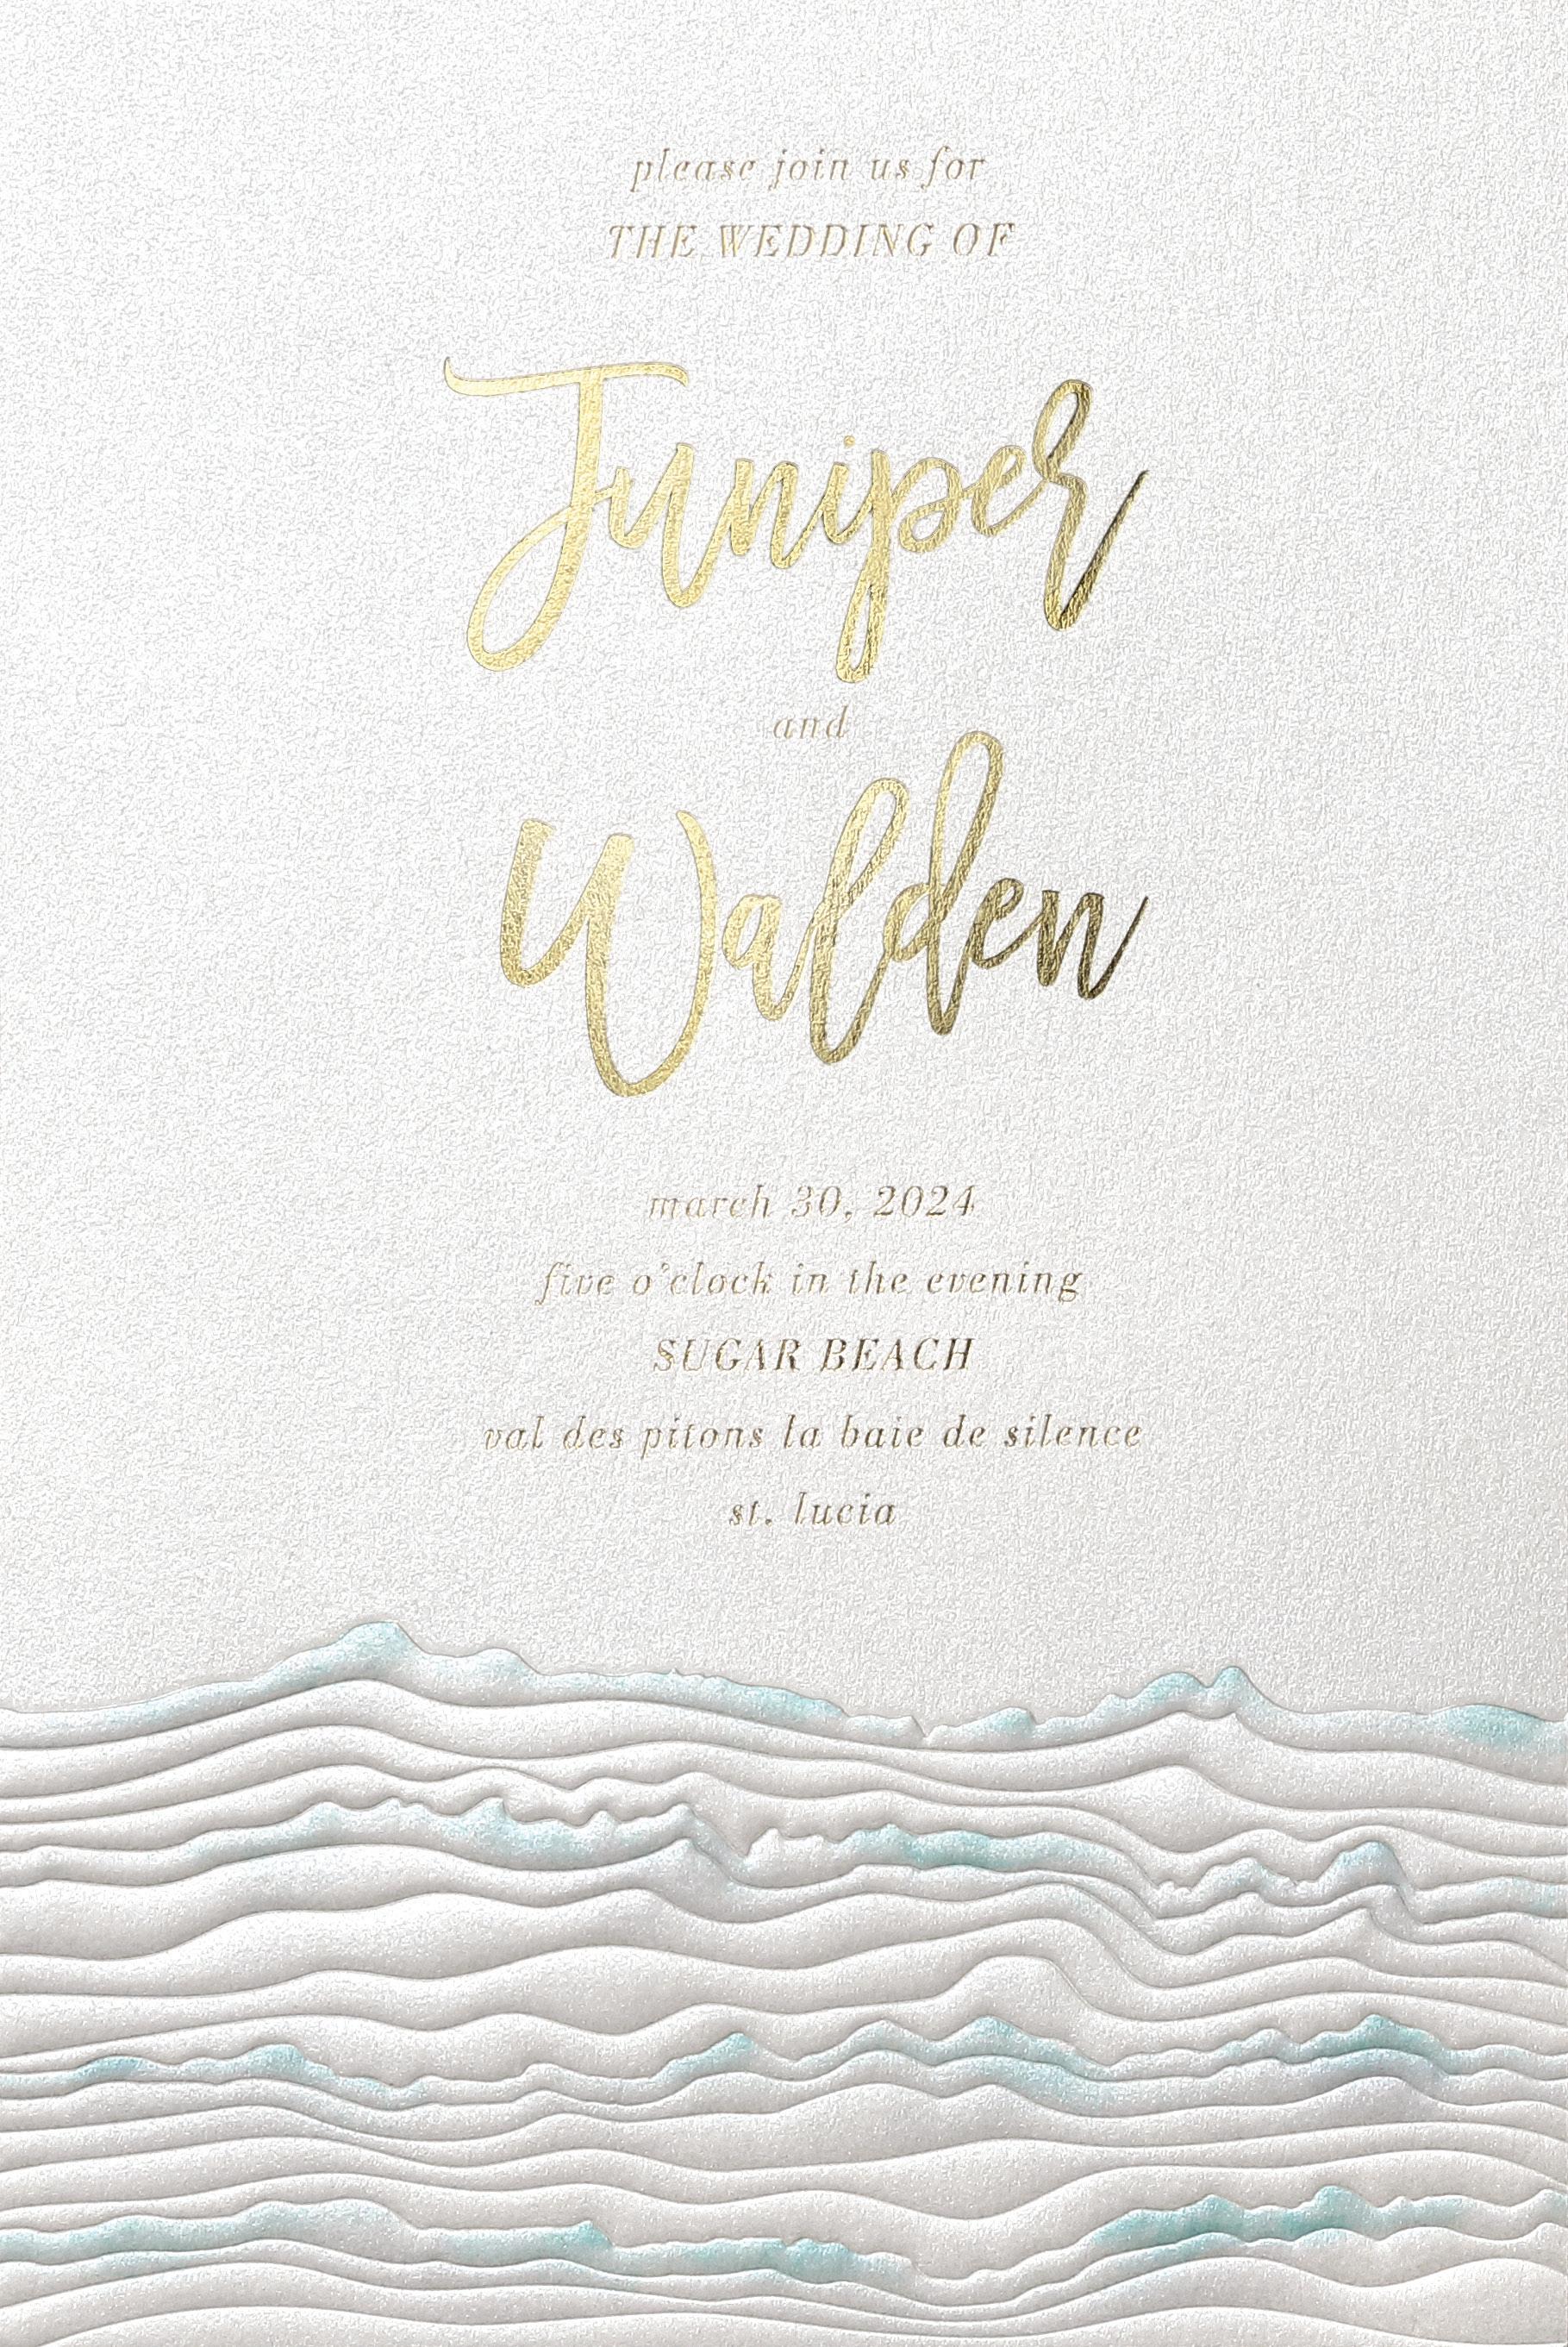 please join us for
THE WEDDING OF
Juniper
and
Walden
march 30, 2024
five o'clock in the evening
SUGAR BEACH
val des pitons la baie de silence
st. lucia